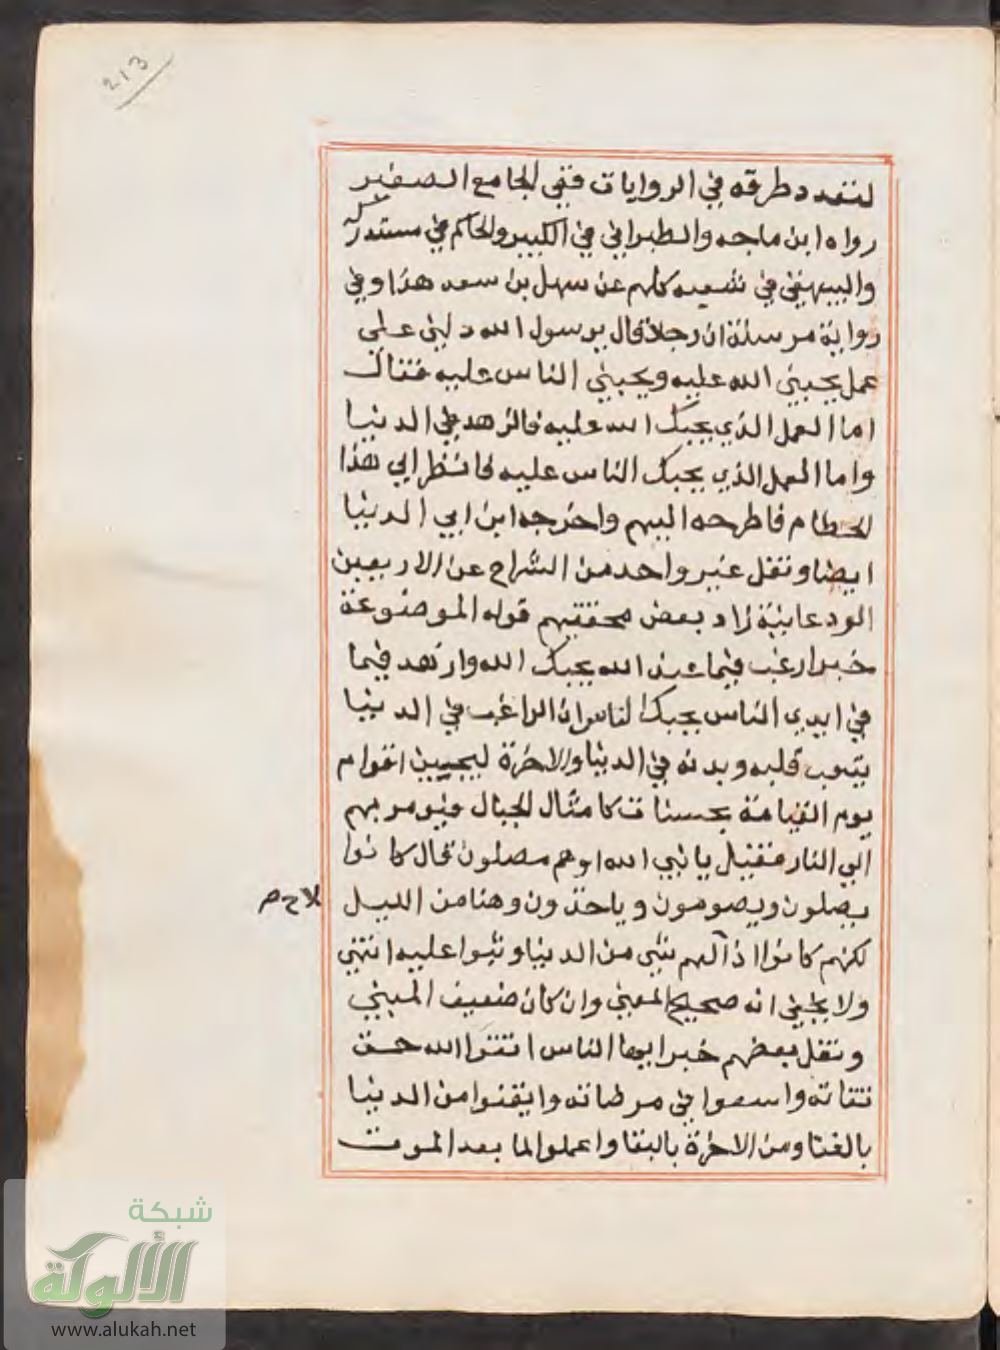 213
لتعدد طرقه في الروايات ففي الجامع الصغير
رواه ابن ماجه والطبراني في الكبير والحاكم في مستدركه
والبيهقي في شعبه كلهم عن سهل بن سعد هذا وفي
رواية مرسلة ان رجلا قال يرسول الله دلني على
عمل يحببني الله عليه ويحببني الناس عليه فقال
اما العمل الذي يحبك الله عليه فالزهد في الدنيا
واما العمل الذي يحبك الناس عليه فانظر الى هذا
الحطام فاطرحه اليهم واخرجه ابن ابي الدنيا
ايضا ونقل غير واحد من الشراح عن الاربعين
الودعانية زاد بعض محققيهم قوله الموضوعة
خبر ارغب فيما عند الله يحبك الله وازهد فيما
في ايدي الناس يحبك الناس ان الراغب في الدنيا
يتعب قلبه وبدنه في الدنيا والاخرة ليجيين اقوام
يوم القيامة بحسنات كامثال الجبال فيومر بهم
الى النار فقيل يا نبي الله اوهم مصلون قال كانوا
يصلون ويصومون وياخذون وهنا من الليل
لكنهم كانوا اذا لهم شي من الدنيا وثبوا عليه انتهى
ولا يخفى انه صحيح المعنى وان كان ضعيف المبنى
ونقل بعضهم خبر ايها الناس اتقوا الله حق
تقاته واسعوا في مرضاته وايقنوا من الدنيا
بالفنا ومن الاخرة بالبقا واعملوا لما بعد الموت
شبكة
الألوكة
www.alukah.net